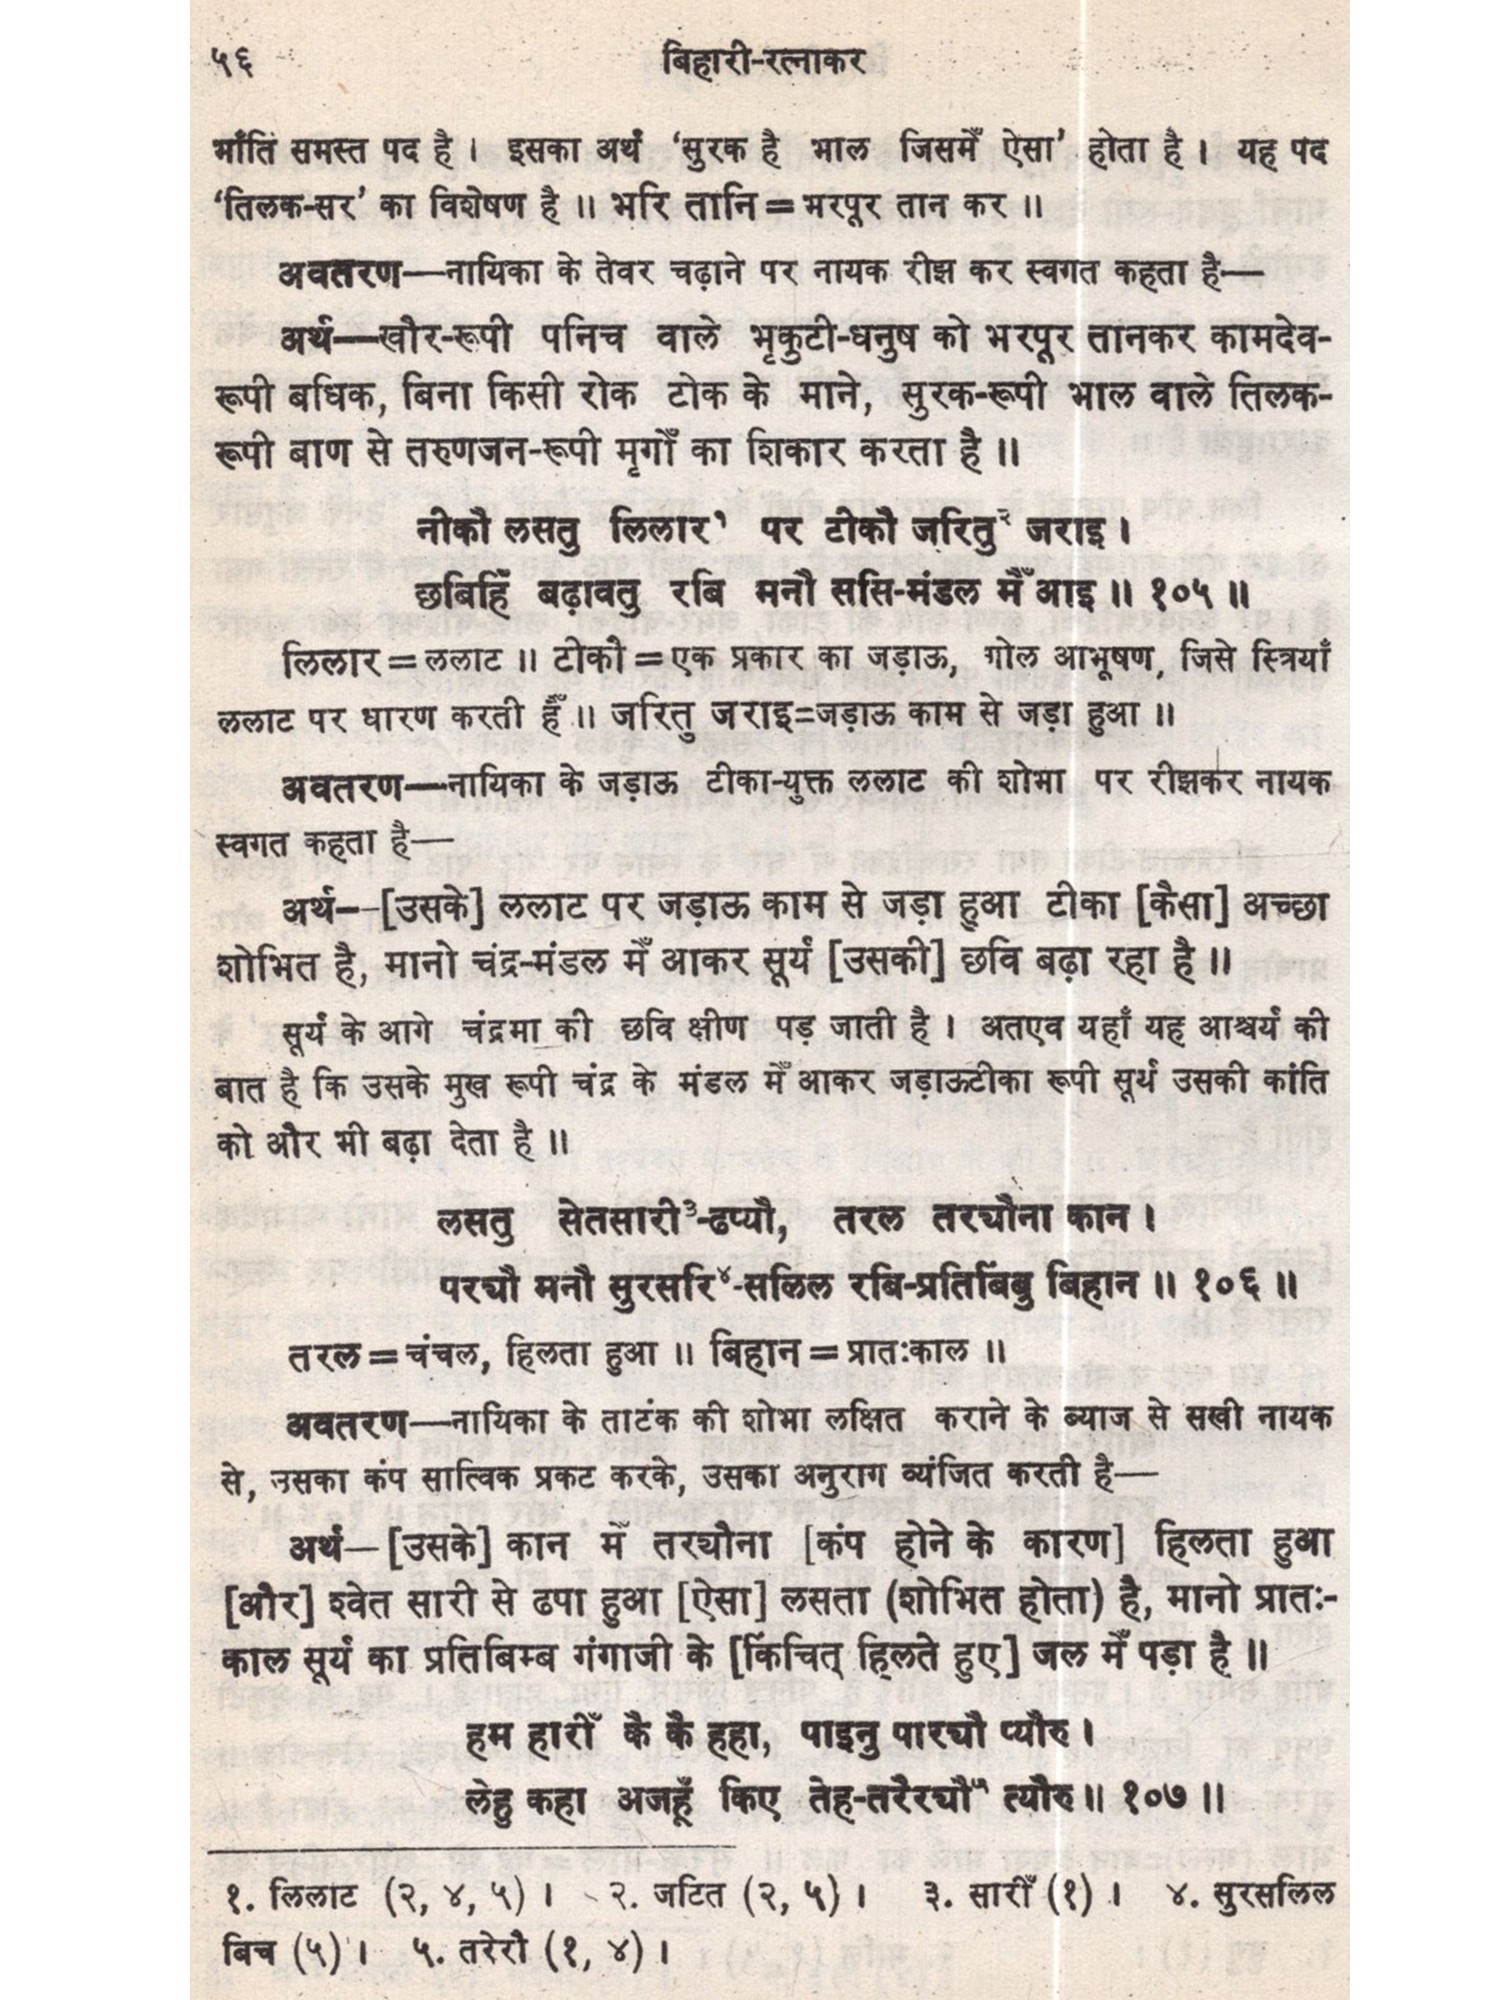 ५६
बिहारी-रत्नाकर
भाँति समस्त पद है । इसका अर्थ ‘सुरक है भाल जिसमेँ ऐसा’ होता है । यह पद
‘तिलक-सर’ का विशेषण है ॥ भरि तानि = भरपूर तान कर ॥
अवतरण—नायिका के तेवर चढ़ाने पर नायक रीझ कर स्वगत कहता है—
अर्थ—खौर-रूपी पनिच वाले भृकुटी-धनुष को भरपूर तानकर कामदेव-
रूपी बधिक, बिना किसी रोक टोक के माने, सुरक-रूपी भाल वाले तिलक-
रूपी बाण से तरुणजन-रूपी मृगोँ का शिकार करता है ॥
नीकौ लसतु लिलार१ पर टीकौ जरितु२ जराइ ।
छबिहिँ बढ़ावतु रबि मनौ ससि-मंडल मैँ आइ ॥ १०५ ॥
लिलार = ललाट ॥ टीकौ = एक प्रकार का जड़ाऊ, गोल आभूषण, जिसे स्त्रियाँ
ललाट पर धारण करती हैँ ॥ जरितु जराइ=जड़ाऊ काम से जड़ा हुआ ॥
अवतरण—नायिका के जड़ाऊ टीका-युक्त ललाट की शोभा पर रीझकर नायक
स्वगत कहता है—
अर्थ—[उसके] ललाट पर जड़ाऊ काम से जड़ा हुआ टीका [कैसा] अच्छा
शोभित है, मानो चंद्र-मंडल मेँ आकर सूर्य [उसकी] छवि बढ़ा रहा है ॥
सूर्य के आगे चंद्रमा की छवि क्षीण पड़ जाती है । अतएव यहाँ यह आश्चर्य की
बात है कि उसके मुख रूपी चंद्र के मंडल मेँ आकर जड़ाऊटीका रूपी सूर्य उसकी कांति
को और भी बढ़ा देता है ॥
लसतु सेतसारी३-ढप्यौ, तरल तरद्यौना कान ।
परद्यौ मनौ सुरसरि४-सलिल रबि-प्रतिबिंबु बिहान ॥ १०६ ॥
तरल = चंचल, हिलता हुआ ॥ बिहान = प्रातःकाल ॥
अवतरण—नायिका के ताटंक की शोभा लक्षित कराने के ब्याज से सखी नायक
से, उसका कंप सात्विक प्रकट करके, उसका अनुराग व्यंजित करती है—
अर्थ—[उसके] कान मेँ तरद्यौना [कंप होने के कारण] हिलता हुआ
[और] श्वेत सारी से ढपा हुआ [ऐसा] लसता (शोभित होता) है, मानो प्रातः-
काल सूर्य का प्रतिबिम्ब गंगाजी के [किंचित् हिलते हुए] जल मेँ पड़ा है ॥
हम हारीँ कै कै हहा, पाइनु पारद्यौ प्यौरु ।
लेहु कहा अजहूँ किए तेह-तरैरद्यौ५ त्यौरु ॥ १०७ ॥
१. लिलाट (२, ४, ५) । २. जटित (२, ५) । ३. सारीँ (१) । ४. सुरसलिल
बिच (५) । ५. तरेरौ (१, ४) ।